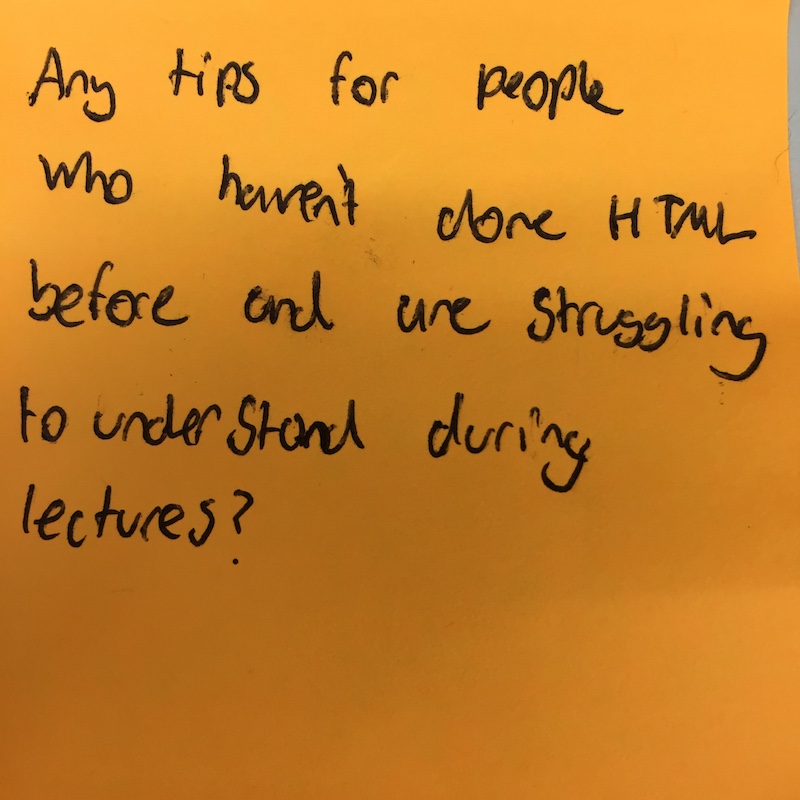 Any tips for people
who haven't done HTML
before and are struggling
to understand during
lectures?